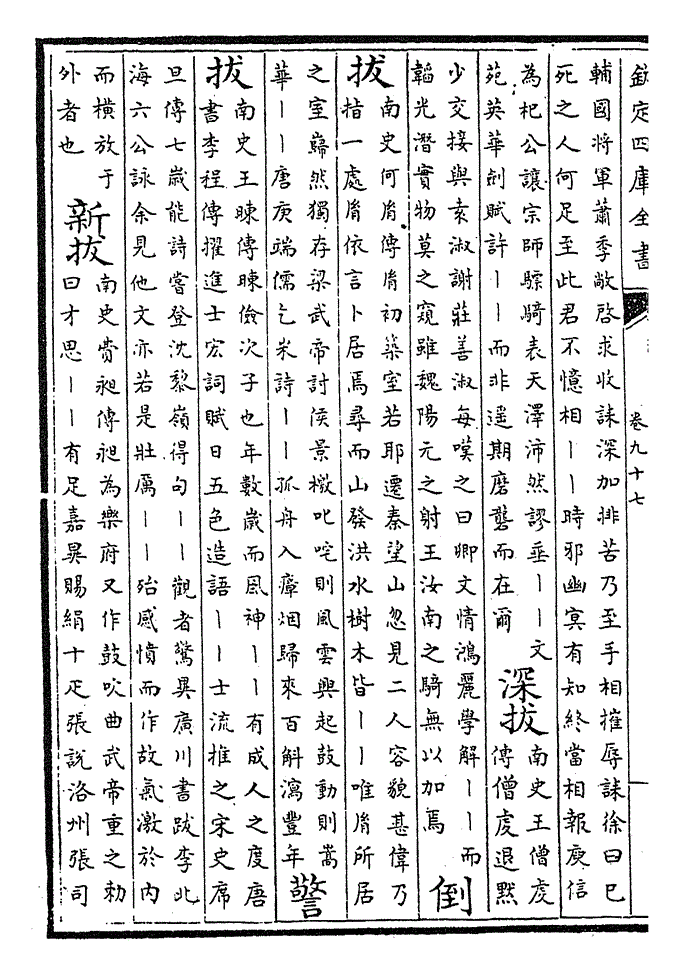 欽定四庫全書
卷九十七
輔國將軍蕭季敞啓求收誅深加排苦乃至手相摧辱誅徐曰已
死之人何足至此君不憶相丨丨時邪幽冥有知終當相報庾信
為杞公讓宗師驃騎表天澤沛然謬垂丨丨文
苑英華劍賦許丨丨而非遥期磨礱而在爾
深拔
南史王僧䖍
傳僧䖍退黙
少交接與袁淑謝莊善淑每嘆之曰卿文情鴻麗學解丨丨而
韜光潛實物莫之窺雖魏陽元之射王汝南之騎無以加焉
倒
拔
南史何𦙍傳𦙍初築室若耶遷秦望山忽見二人容貌甚偉乃
指一處𦙍依言卜居焉尋而山發洪水樹木皆丨丨唯𦙍所居
之室巋然獨存梁武帝討侯景檄叱咤則風雲興起鼓動則嵩
華丨丨唐庚端儒乞米詩丨丨孤舟入瘴烟歸來百斛瀉豐年
警
拔
南史王暕傳暕儉次子也年數歲而風神丨丨有成人之度唐
書李程傳擢進士宏詞賦日五色造語丨丨士流推之宋史席
旦傳七歲能詩嘗登沈黎嶺得句丨丨觀者驚異廣川書跋李北
海六公詠余見他文亦若是壯厲丨丨殆感憤而作故氣激於内
而橫放于
外者也
新拔
南史費昶傳昶為樂府又作鼓吹曲武帝重之勑
曰才思丨丨有足嘉異賜絹十疋張說洛州張司